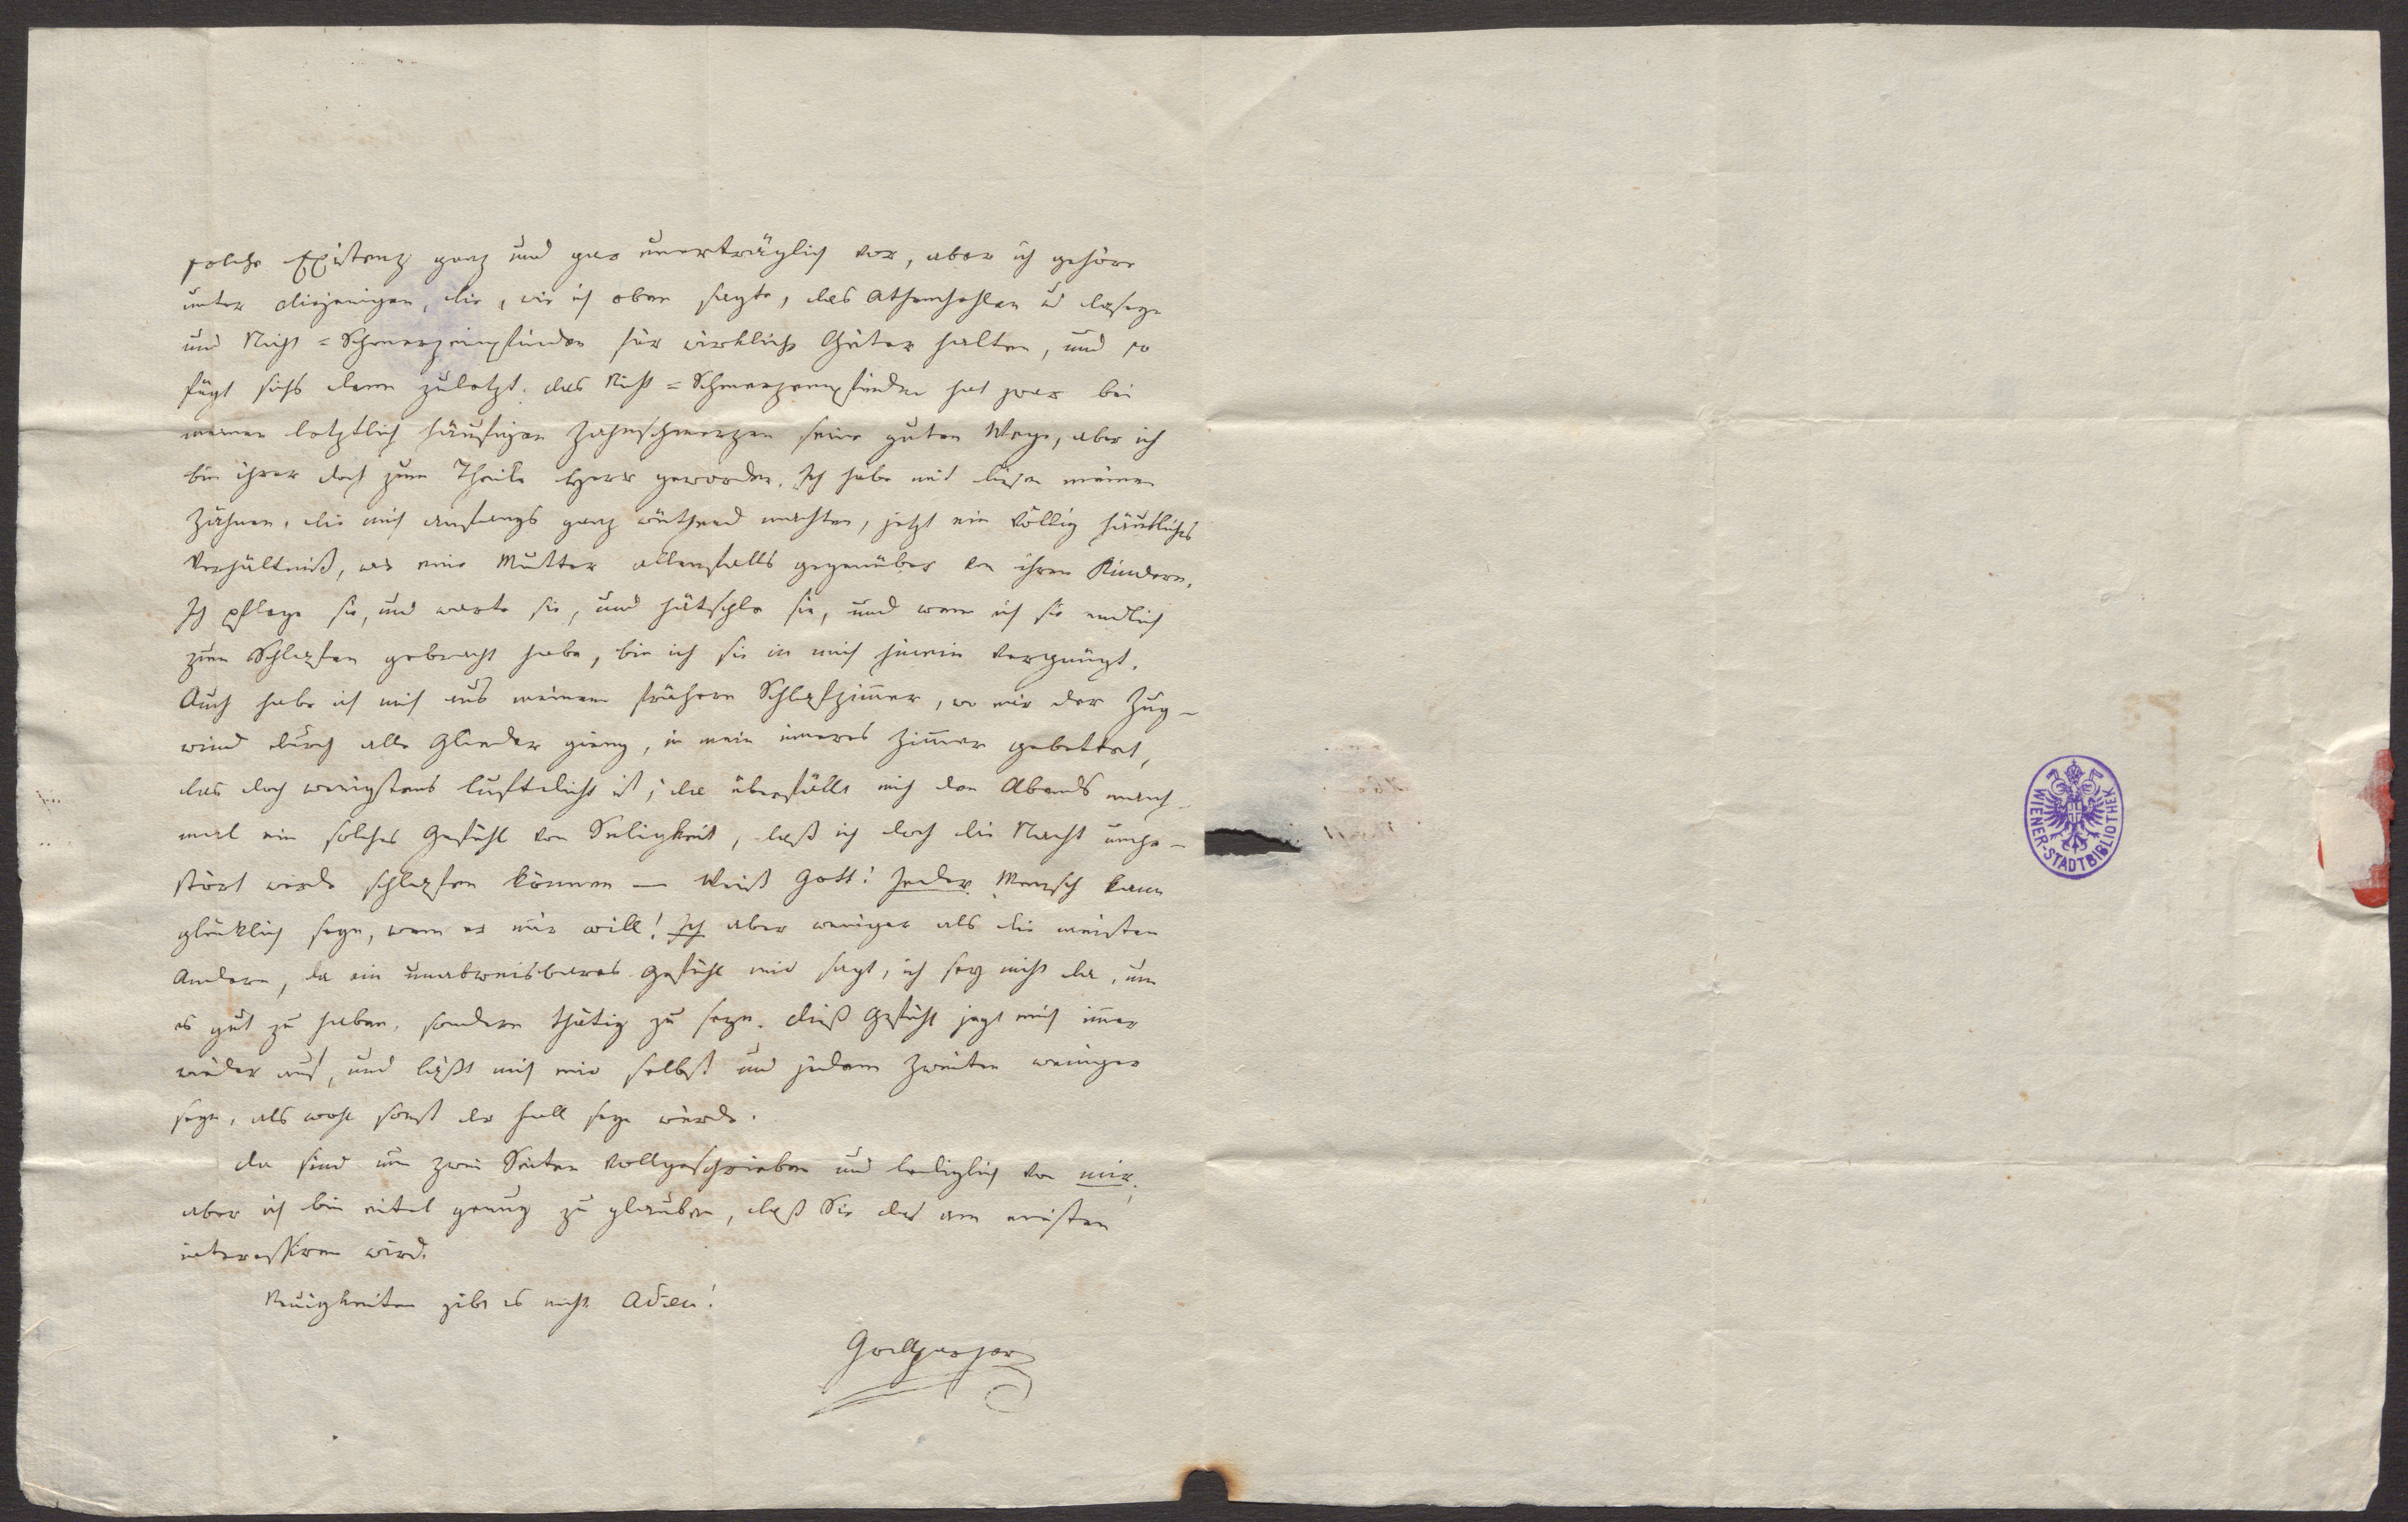 solche Existenz ganz und gar unerträglich vor, aber ich gehöre
unter diejenigen, die, wie ich oben sagte, das Athemhohlen u daseyn
und Nicht=Schmerzempfinden für wirkliche Güter halten, und so
fügt sichs denn zuletzt. das Nicht=Schmerzempfinden hat zwar bei
meinen letztlich häufigen Zahnschmerzen seine guten Wege, aber ich
bin ihrer doch zum Theile Herr geworden. Ich habe mit diesen meinen
Zähnen, die mich anfangs ganz wüthend machten, jetzt ein völlig häusliches
Verhältniß, wie eine Mutter allenfalls gegenüber von ihren Kindern.
Ich pflege sie, und warte sie, und hätschle sie, und wenn ich sie endlich
zum Schlafen gebracht habe, bin ich sie in mich hinein vergnügt.
Auch habe ich mich aus meinem frühern Schlafzimmer, wo mir der Zug-
wind durch alle Glieder gieng, in mein inneres Zimmer gebettet,
das doch wenigstens luftdicht ist; da überfällt mich den Abends manch-
mal ein solches Gefühl von Seligkeit, daß ich doch die Nacht unge-
stört werde schlafen können — Weiß Gott! Jeder Mensch kann
glücklich seyn, wenn er nur will! Ich aber weniger als die meisten
Andern, da ein unabweisbares Gefühl mir sagt, ich sey nicht da, um
es gut zu haben, sondern thätig zu seyn. dieß Gefühl jagt mich immer
wieder auf, und läßt mich mir selbst und jedem Zweiten weniger
seyn, als wohl sonst der Fall seyn würde.
da sind nun zwei Seiten vollgeschrieben und lediglich von mir,
aber ich bin eitel genug zu glauben, daß Sie das am meisten
interessiren wird.
Neuigkeiten gibt es nicht. Adieu!
Grillparzer
WIENER-STADTBIBLIOTHEK